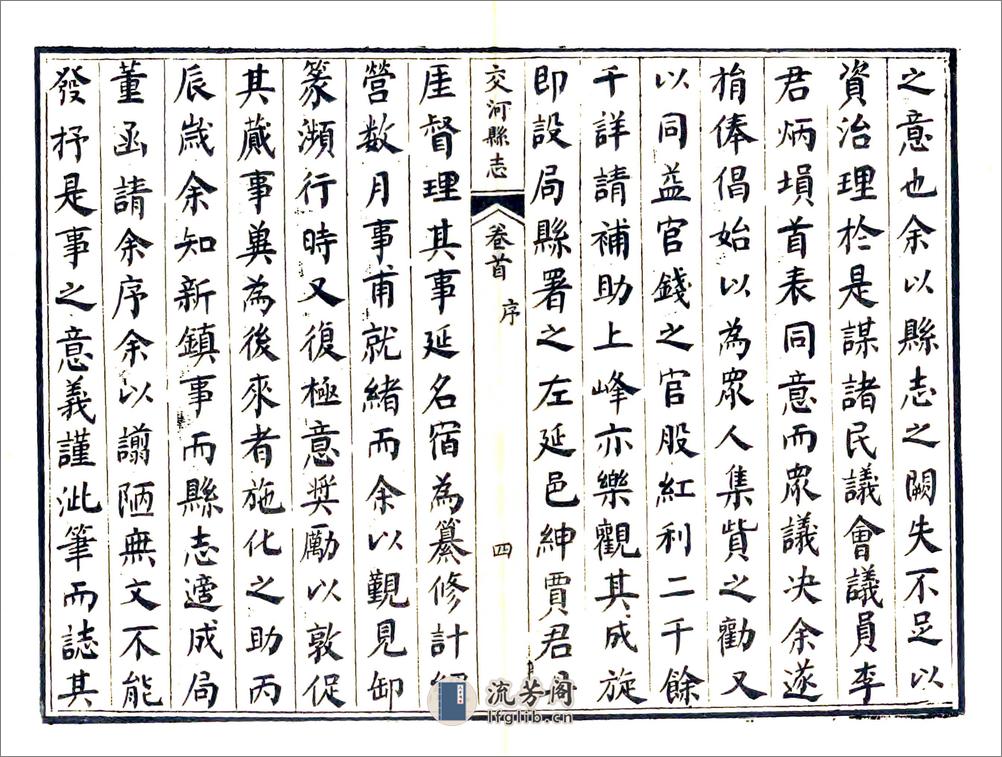 之意也余以縣志之闕失不足以
資治理於是謀諸民議會議員李
君炳塤首表同意而眾議決余遂
捐俸倡始以為眾人集貲之勸又
以同益官錢之官股紅利二千餘
千詳請補助上峰亦樂觀其成旋
即設局縣署之左延邑紳賈君
交河縣志
卷首
序
四
厓督理其事延名宿為纂修計
營數月事甫就緒而余以覲見卸
篆瀕行時又復極意奬勵以敦促
其蕆事冀為後來者施化之助丙
辰歲余知新鎮事而縣志適成局
董函請余序余以譾陋無文不能
發抒是事之意義謹泚筆而誌其
流芳阁
lfglib.cn